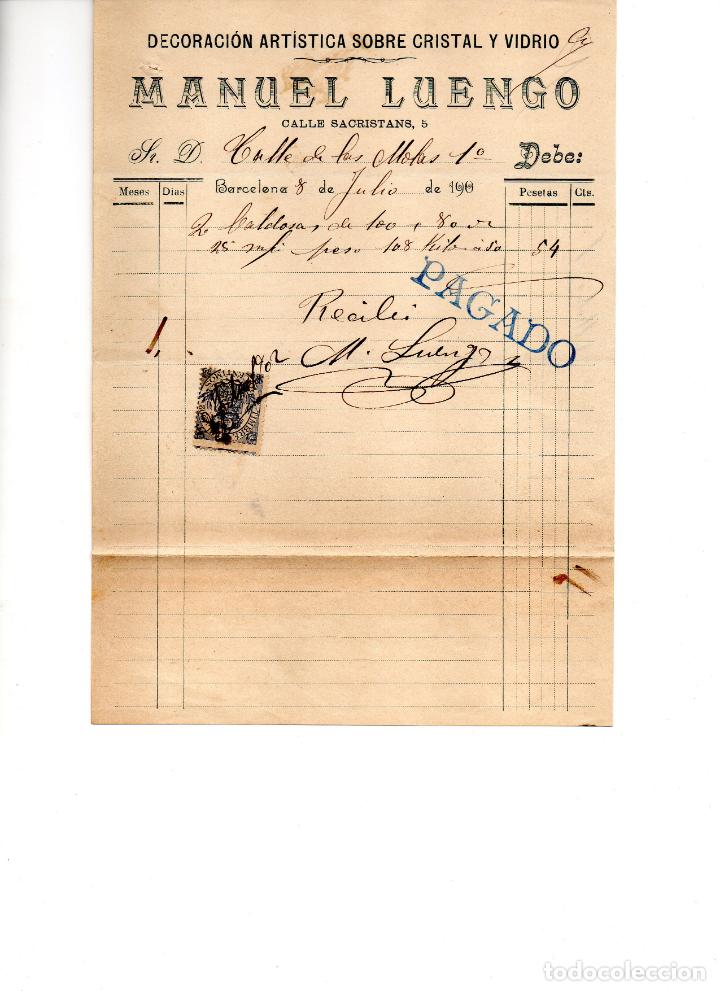 DECORACIÓN ARTÍSTICA SOBRE CRISTAL Y VIDRIO
MANUEL LUENGO
CALLE SACRISTANS, 5
Sr. D. Calle de las Molas 1º Debe:
Meses Días Barcelona 8 de Julio de 190 Pesetas Cts.
2 Baldosas de 100 x 80
25 peso 108 54
PAGADO
Recibi
M. Luengo
todocoleccion